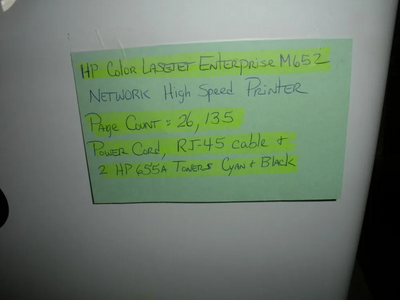 HP Color LaserJet Enterprise M652
Network High Speed Printer
Page Count = 26,135
Power Cord, RJ-45 cable +
2 HP 655A Toners Cyan + Black